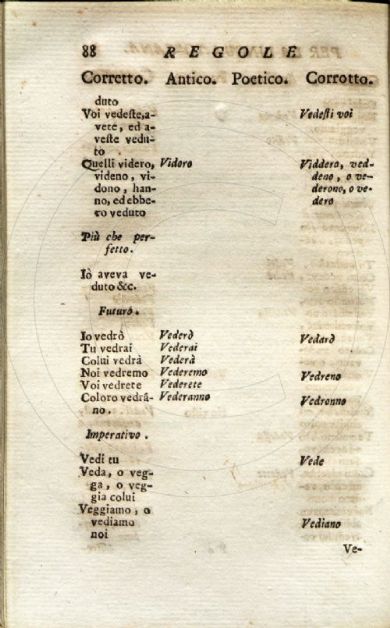 88 REGOLE
Corretto. Antico. Poetico. Corrotto.
duto
Voi vedeste, a- Vedesti voi
vete, ed a-
veste vedu-
to
Quelli videro, Vidoro Viddero, ved-
videno, vi- deno, o ve-
dono, han- derono, o ve-
no, ed ebbe- dero
ro veduto
Più che per-
fetto.
Iò aveva ve-
duto &c.
Futuro.
Io vedrò Vederò Vedarò
Tu vedrai Vederai
Colui vedrà Vederà
Noi vedremo Vederemo Vedreno
Voi vedrete Vederete
Coloro vedrà- Vederanno Vedronno
no.
Imperativo.
Vedi tu Vede
Veda, o veg-
ga, o veg-
gia colui
Veggiamo, o
vediamo Vediano
noi
Ve-